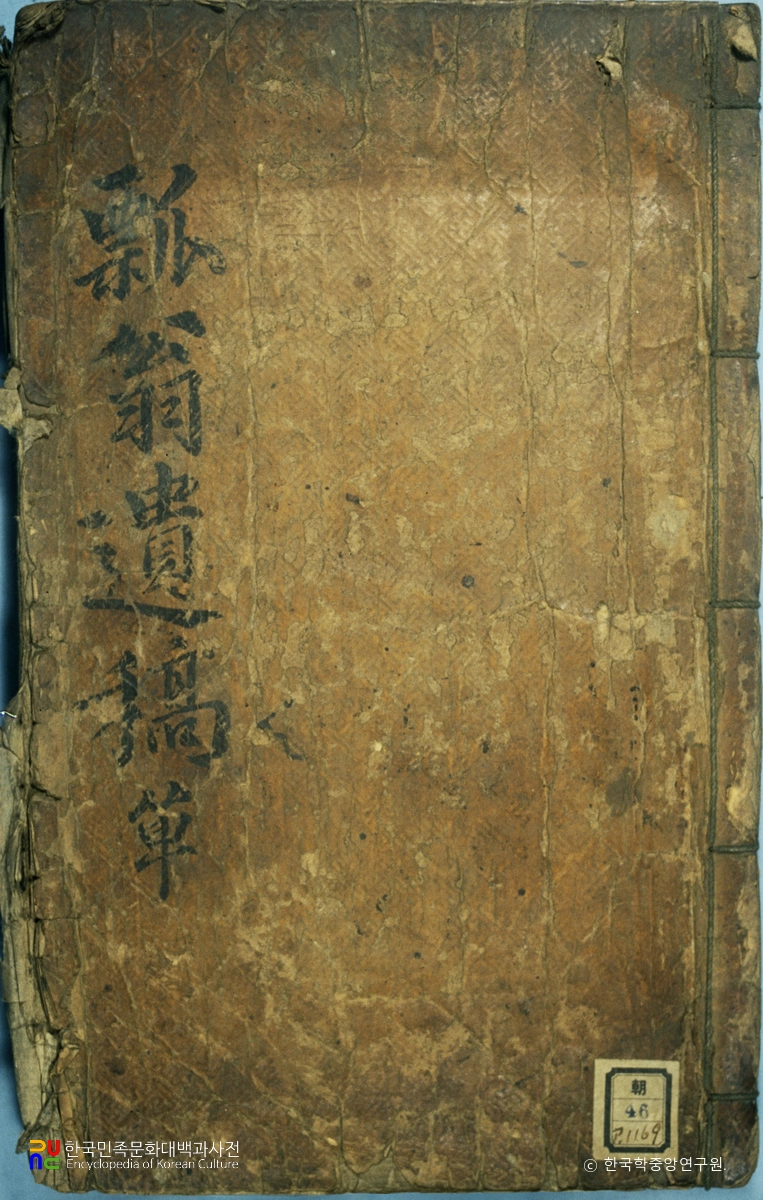 瓢翁遺稿單
朝
46
P.1169
한국민족문화대백과사전
Encyclopedia of Korean Culture
ⓒ 한국학중앙연구원